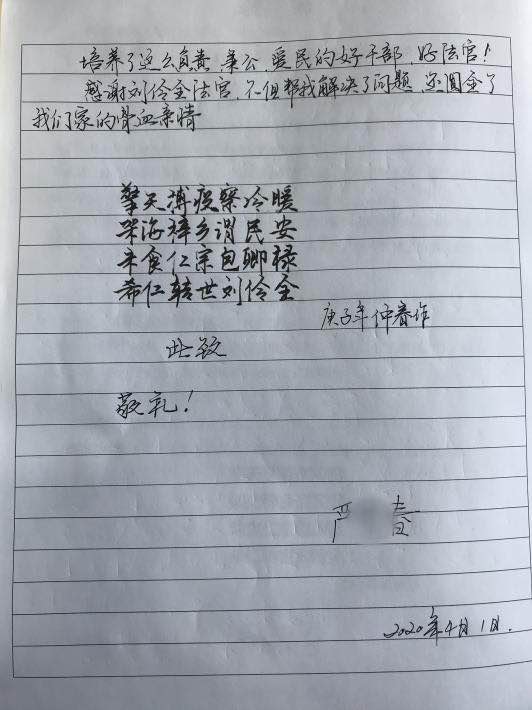 培养了这么负责、秉公、爱民的好干部、好法官!
感谢刘伶全法官、不但帮我解决了问题、还圆全了
我们家的骨血亲情
擎天搏疫察冷暖
梓乡谓民安
食仁宗包卿禄
希仁转世刘伶全
庚子年仲春作
此致
敬礼!
严
2020年4月1日.